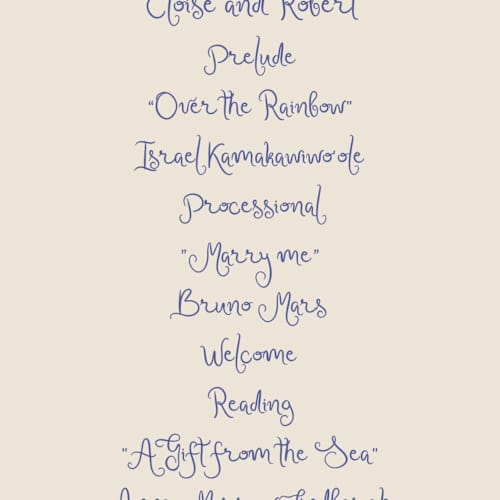 Eloise and Robert
Prelude
“Over the Rainbow”
Israel Kamakawiwo'ole
Processional
”Marry me”
Bruno Mars
Welcome
Reading
"A Gift from the Sea"